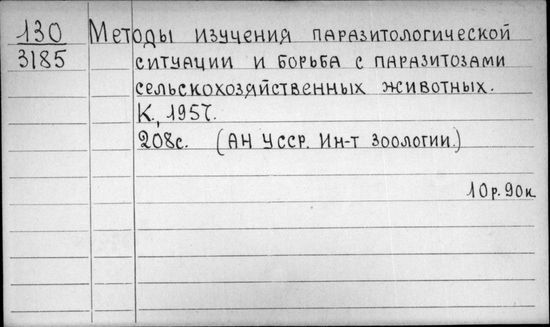 130 Методы изучения паразитологической
3185 ситуации и борьба с паразитозами
сельскохозяйственных животных.
К., 1957.
208с. (АН УССР. Ин-т зоологии.)
10р.90к